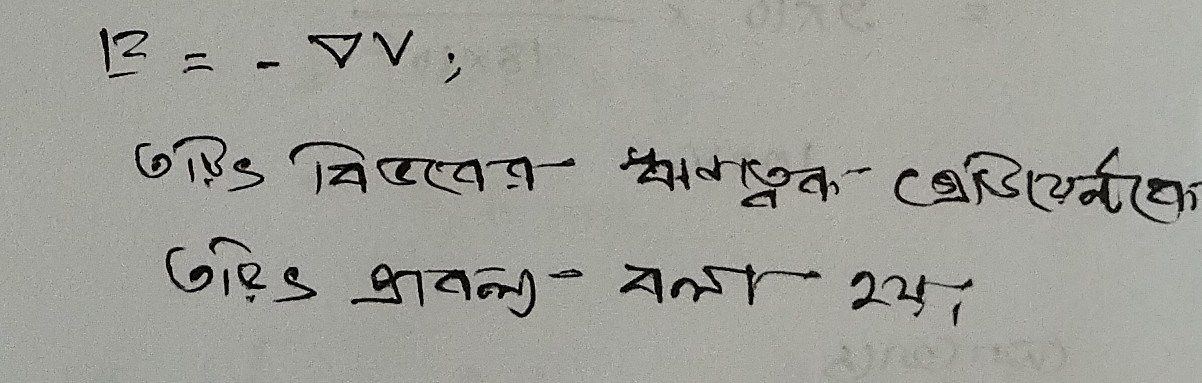 E = - ∇V;
তড়িৎ বিভবের ঋণাত্নক গ্রেডিয়েন্টকে
তড়িৎ প্রাবল্য বলা হয়,